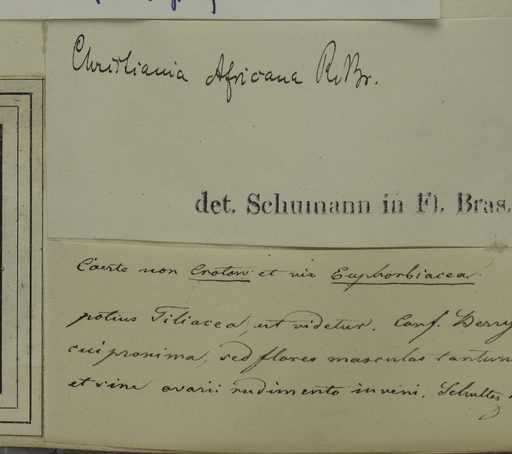 Christiania Africana R. Br.
det. Schumann in Fl. Bras.
Certe non Croton et vix Euphorbiacea.
potius Tiliacea, ut videtur. Conf. Berry
cui proxima, sed flores masculos tantum
et sine ovarii rudimento inveni. Schultes